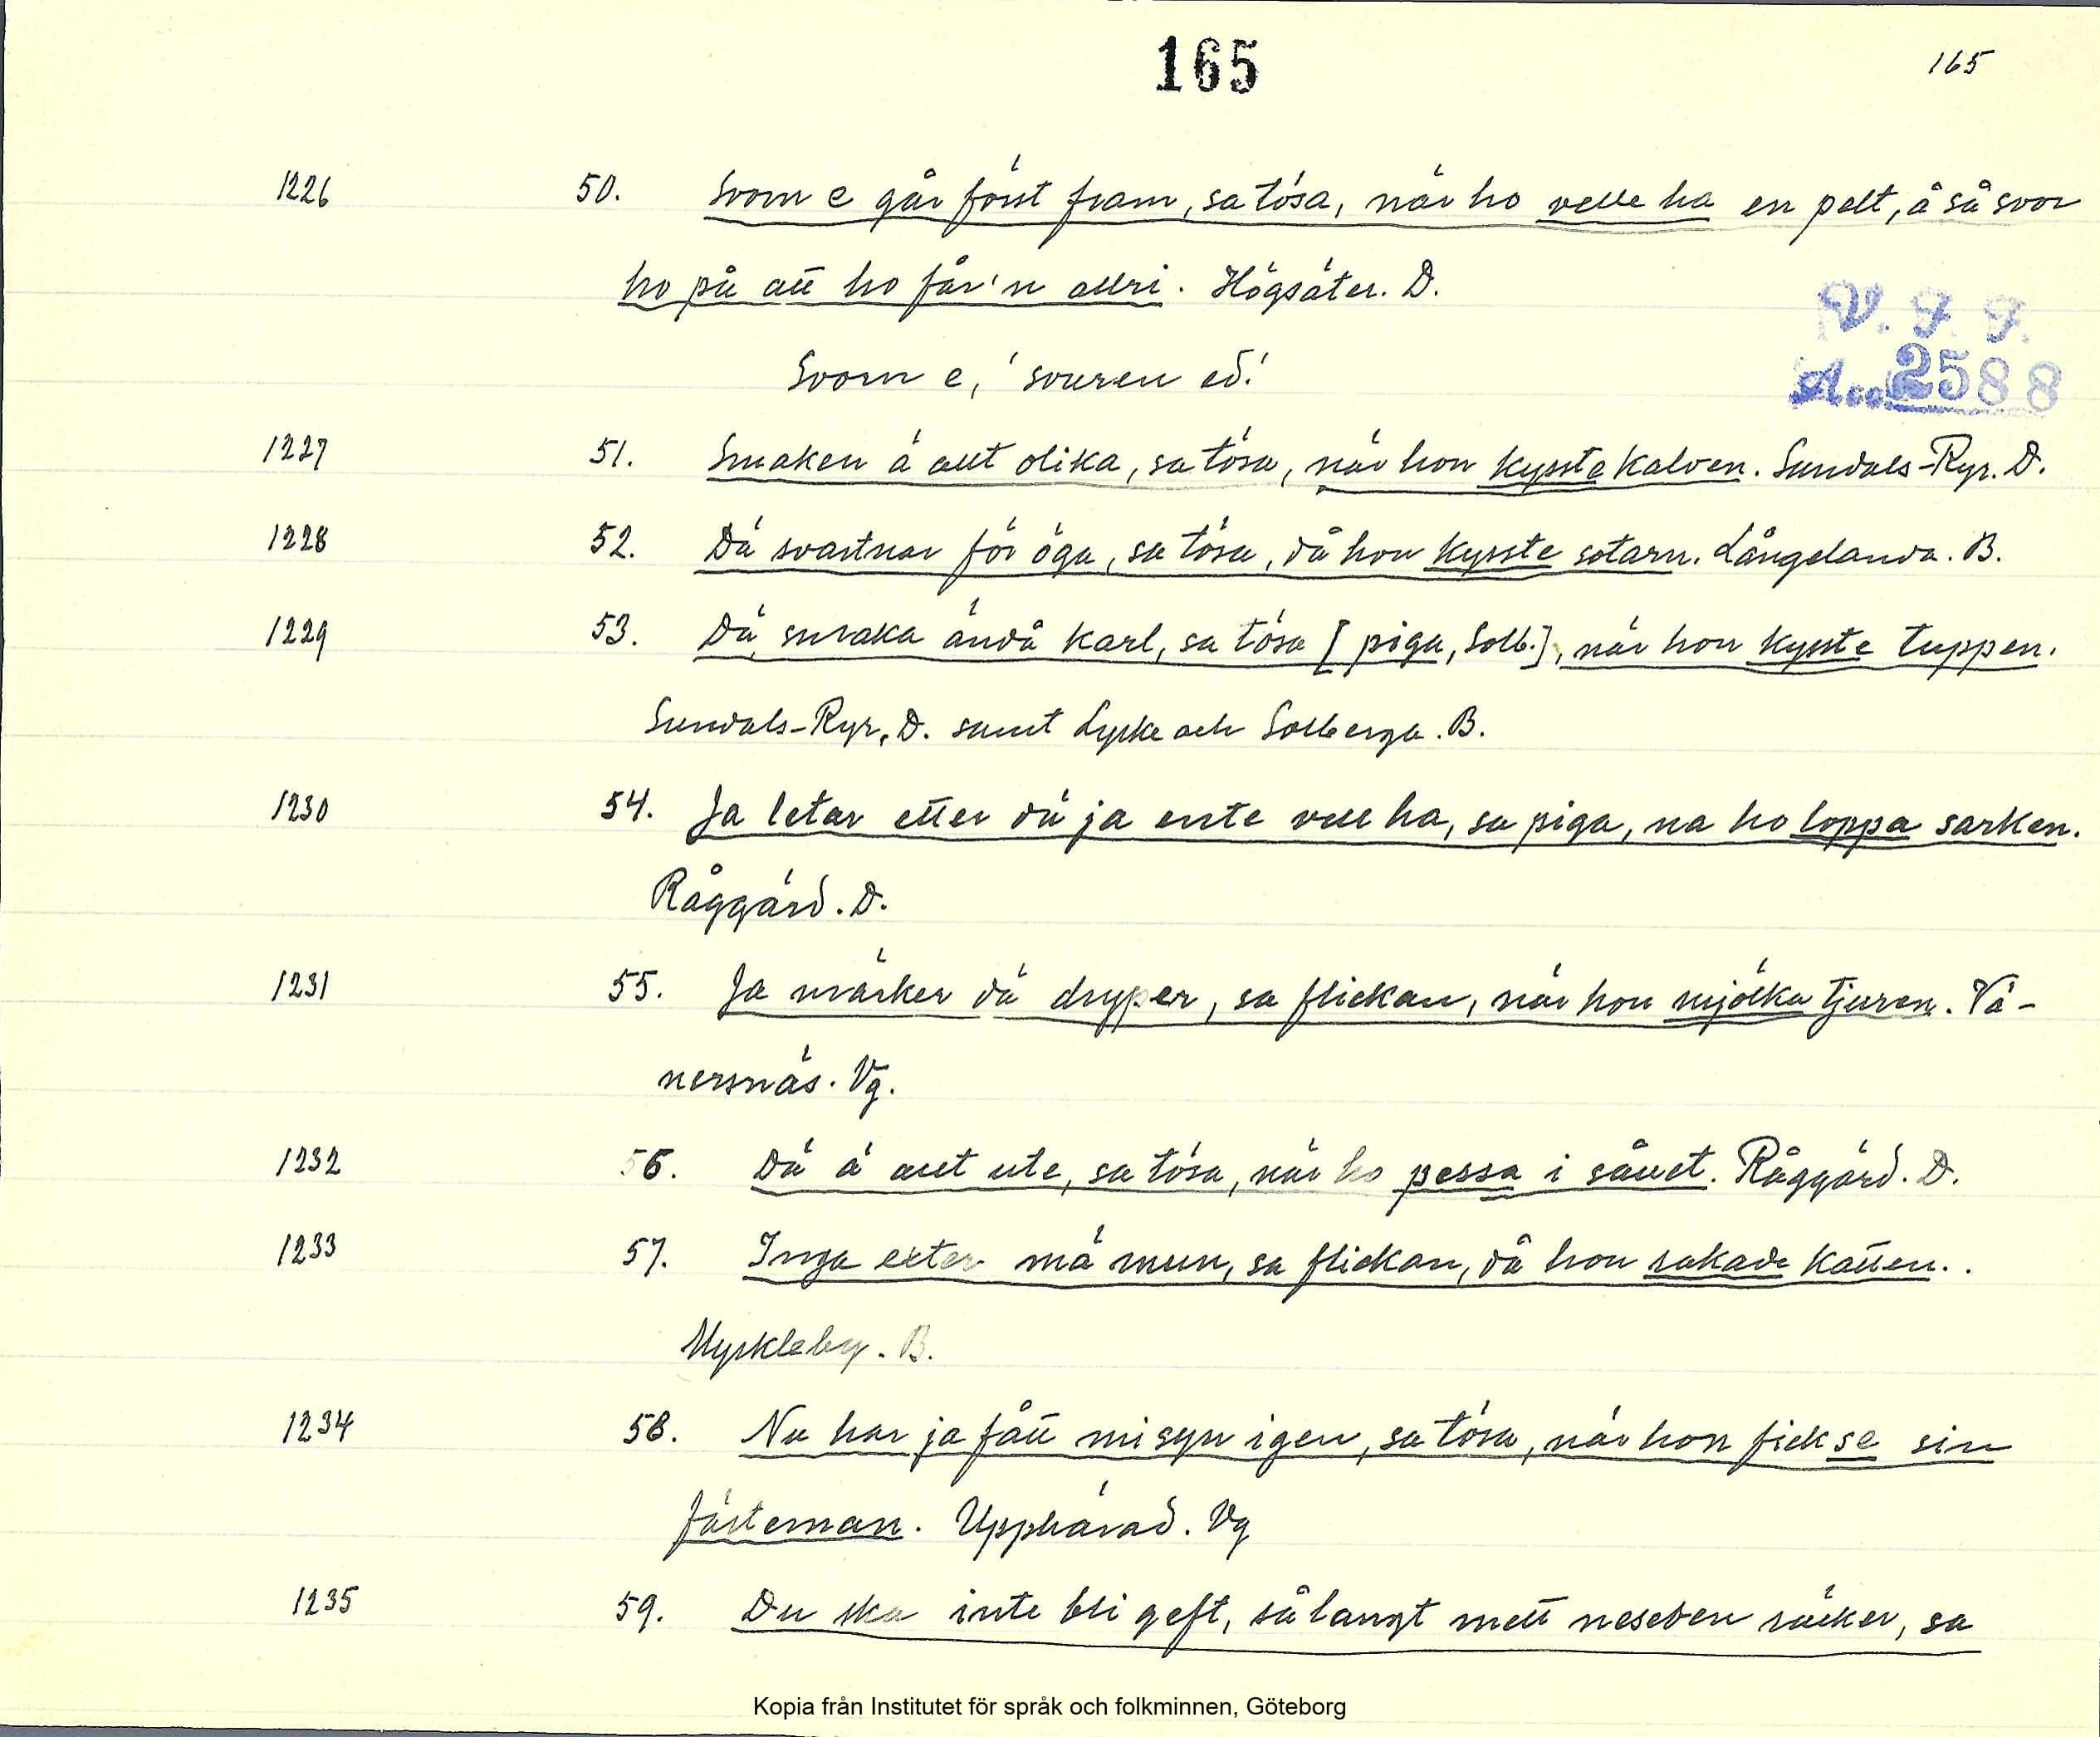 165
165
1226 50. Svorn e går först fram, sa tösa, när ho velle ha en pelt, å så svor
ho på att ho får'n allri. Högsäter. D.
V. F. F.
Svorn e, 'svuren ed.'
Acc. 2588
1227 51. Smaken ä allt olika, sa tösa, när hon kysste kalven. Sundals-Ryr. D.
1228 52. Dä svartnar för öga, sa tösa, då hon kysste sotarn. Långelanda. B.
1229 53. Dä smaka ändå karl, sa tösa [piga, Solb.], när hon kysste tuppen.
Sundals-Ryr. D. samt Lyse och Solberga. B.
1230 54. Ja letar etter dä ja ente vell ha, sa piga, na ho loppa sarken.
Råggärd. D.
1231 55. Ja märker dä dryper, sa flickan, när hon mjölka tjuren. Vä-
nersnäs. Vg.
1232 56. Dä ä allt ute, sa tösa, när ho pessa i sållet. Råggärd. D.
1233 57. Inga exter mä mun, sa flickan, då hon rakade katten.
Myckleby. B.
1234 58. Nu har ja fått mi syn igen, sa tösa, när hon fick se sin
fästeman. Upphärad. Vg
1235 59. Du ska inte bli geft, så langt mett neseben räcker, sa
Kopia från Institutet för språk och folkminnen, Göteborg